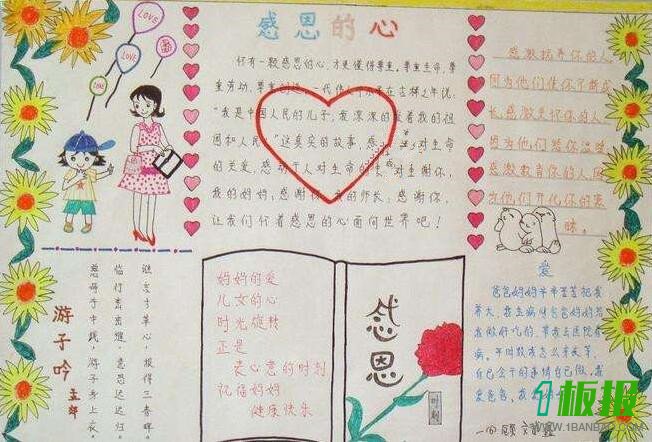 感恩的心
LOVE
LOVE
怀有一颗感恩的心,才更懂得尊重。尊重生命、尊
重劳动、尊重创造。一代伟人
说:
"我是中国人民的儿子,我深深的爱着我的祖
国和人民。"这真实的故事,感
对生命
的关爱,感动于人对生命的
对
我的妈妈;感谢
我的师长;感谢你,
让我们怀着感恩的心面向世界吧!
感激抚养你的人
因为他们使你不断成
长感激关怀你的人
因为他们给你温暖
感激教育你的人因
为他们开化你的蒙
昧。
爱
爸爸妈妈辛辛苦苦把我
养大,我生病时爸爸妈妈给
我做好吃的,带我去医院看
病。平时教我怎么来关
自己会干的事情自己做。我
爱爸爸,
妈妈的爱
儿女的心
时光旋转
正是
爱心意的时刻
祝福妈妈
健康快乐
感恩
时刻
游子吟
孟郊
慈母手中线,游子身上衣。
临行密密缝,意恐迟迟归。
谁言寸草心,报得三春晖。
1板报
WWW.1BANBAO.COM